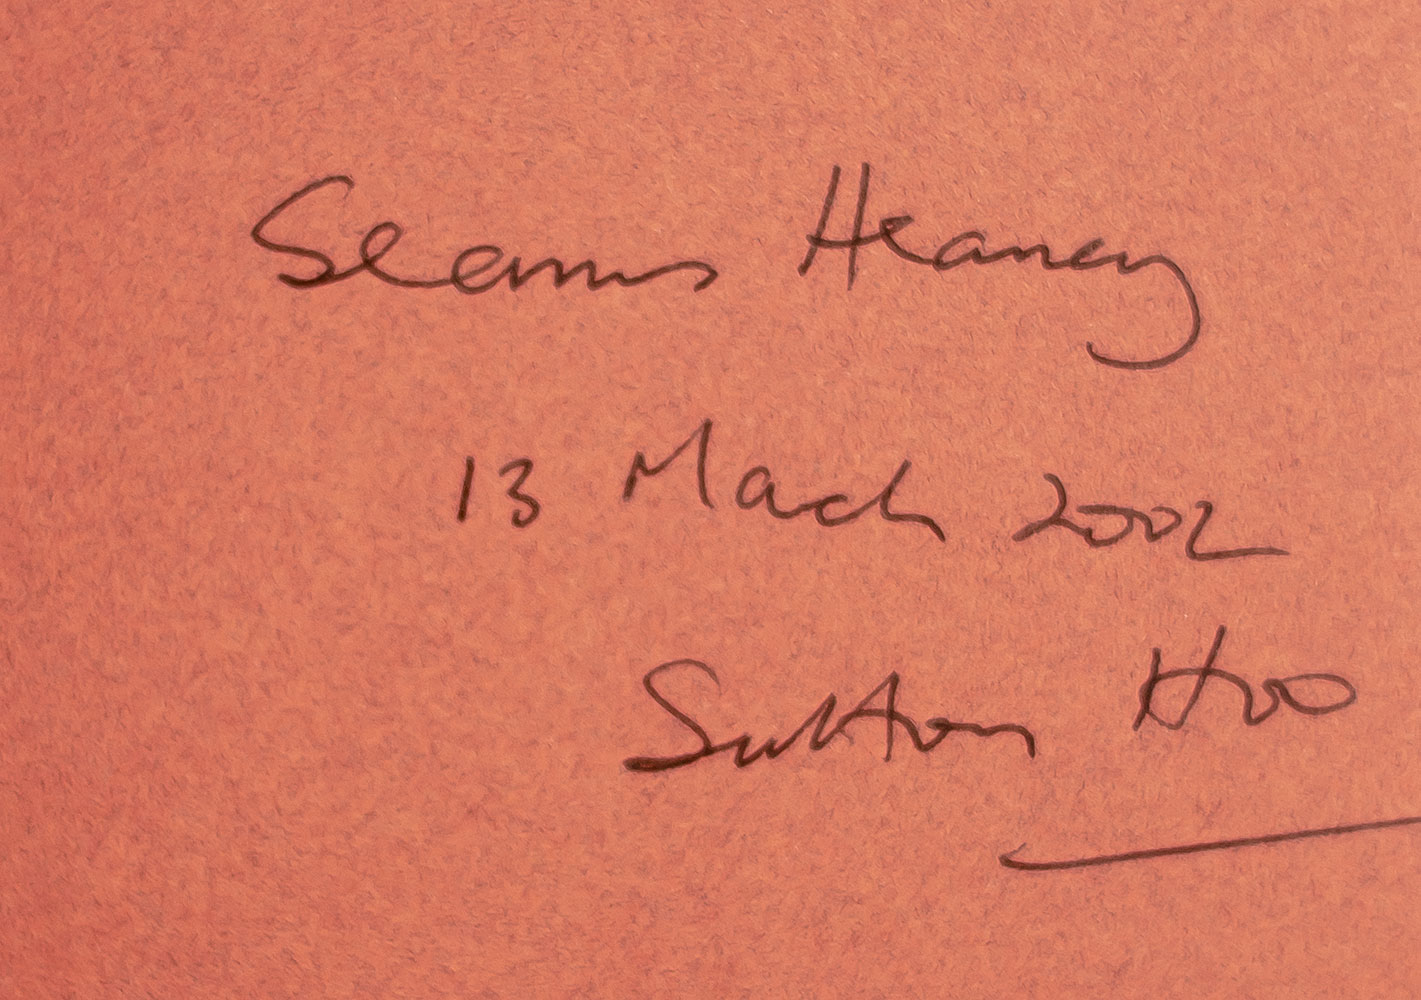 Seamus Heaney
13 March 2002
Sutton Hoo